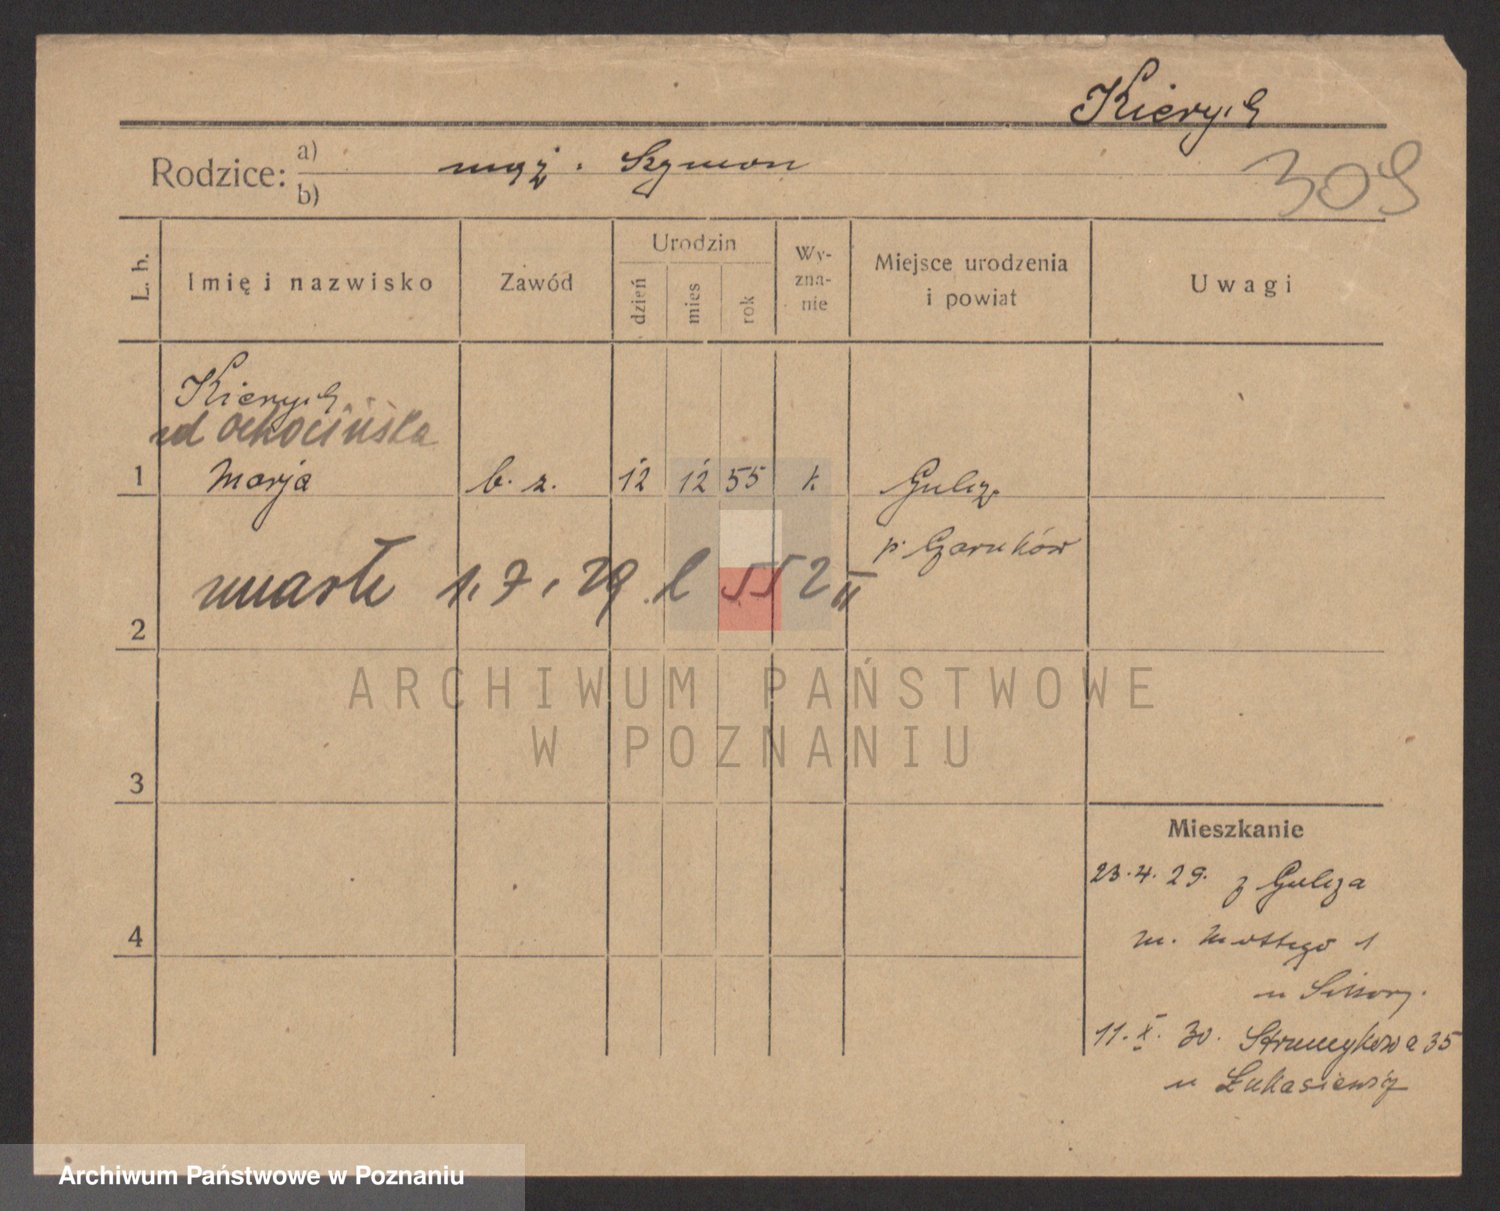 Kierych
Rodzice: a) b) mąż. Szymon
309
L. b. Imię i nazwisko Zawód Urodzin dzień mies rok Wyznanie Miejsce urodzenia i powiat Uwagi
Kierych
zd Ochocińska
1 Marja b. z. 12 12 55 k. Gulcz
p. Czarnków
umarła 1. 7. 39 l 552 II
2
ARCHIWUM PAŃSTWOWE
W POZNANIU
3
Mieszkanie
23.4.29. z Gulcza
4
m. Mottego 1
u
11. X. 30. Strumykowa 35
u Łukasiewicz
Archiwum Państwowe w Poznaniu